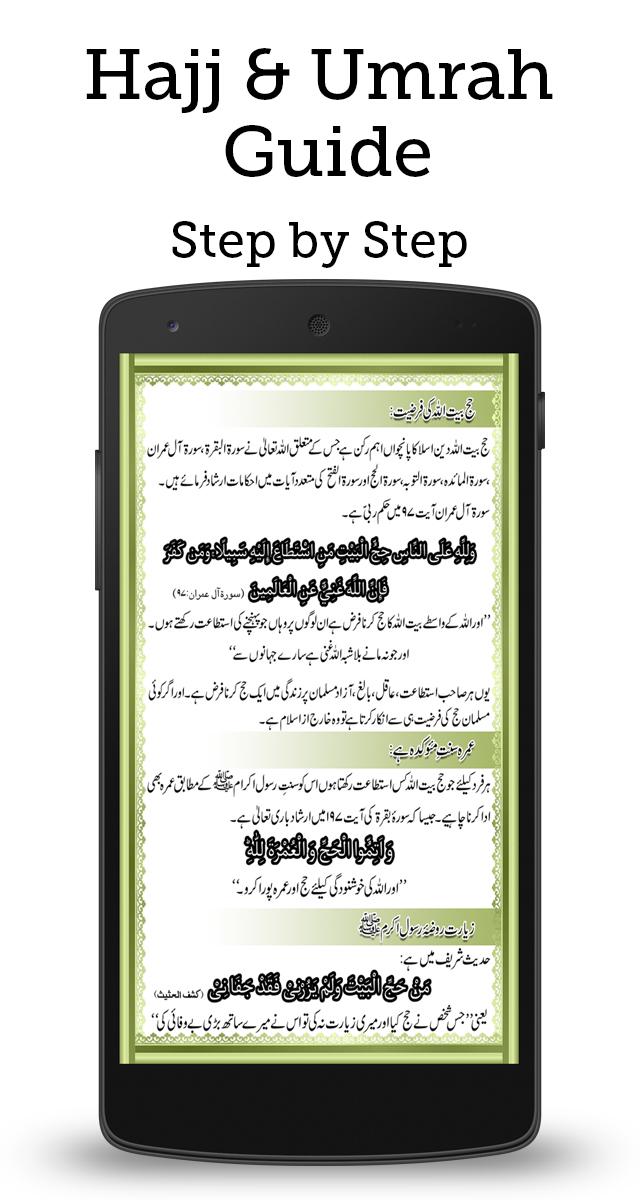 Hajj & Umrah
Guide
Step by Step
حج بیت اللہ کی فرضیت:
حج بیت اللہ دین اسلا کا پانچواں اہم رکن ہے جس کے متعلق اللہ تعالیٰ نے سورۃ البقرۃ، سورۃ آل عمران
،سورۃ المائدہ، سورۃ التوبہ، سورۃ الحج اور سورۃ الفتح کی متعدد آیات میں احکامات ارشاد فرمائے ہیں۔
سورۃ آل عمران آیت ۹۷ میں حکم ربی ہے۔
وَلِلّٰهِ عَلَى النَّاسِ حِجُّ الْبَيْتِ مَنِ اسْتَطَاعَ اِلَيْهِ سَبِيلًا، وَمَن كَفَرَ
فَاِنَّ اللّٰهَ غَنِيٌّ عَنِ الْعَالَمِينَ (سورۃ آل عمران:۹۷)
’’اور اللہ کے واسطے بیت اللہ کا حج کرنا فرض ہے ان لوگوں پر وہاں جو پہنچنے کی استطاعت رکھتے ہوں۔
اور جو نہ مانے بلاشبہ اللہ غنی ہے سارے جہانوں سے‘‘
یوں ہر صاحب استطاعت، عاقل، بالغ، آزاد مسلمان پر زندگی میں ایک حج کرنا فرض ہے۔ اور اگر کوئی
مسلمان حج کی فرضیت ہی سے انکار کرتا ہے تو وہ خارج از اسلام ہے۔
عمرہ سنتِ مئوکدہ ہے:
ہر فرد کیلئے جو حج بیت اللہ کس استطاعت رکھتا ہوں اس کو سنتِ رسول اکرام ﷺ کے مطابق عمرہ بھی
ادا کرنا چاہیے۔ جیسا کہ سورۂ بقرۃ کی آیت ۱۹۷ میں ارشاد باری تعالیٰ ہے۔
وَ اَتِمُّوا الْحَجَّ وَ الْعُمْرَةَ لِلّٰهِ
’’اور اللہ کی خوشنودگی کیلئے حج اور عمرہ پورا کرو۔‘‘
زیارت روضۂ رسول اکرم ﷺ
حدیث شریف میں ہے:
مَنْ حَجَّ الْبَيْتَ وَلَمْ يَزُرْنِیْ فَقَدْ جَفَانِیْ (کشف الحثیث)
یعنی ’’جس شخص نے حج کیا اور میری زیارت نہ کی تو اس نے میرے ساتھ بڑی بے وفائی کی‘‘